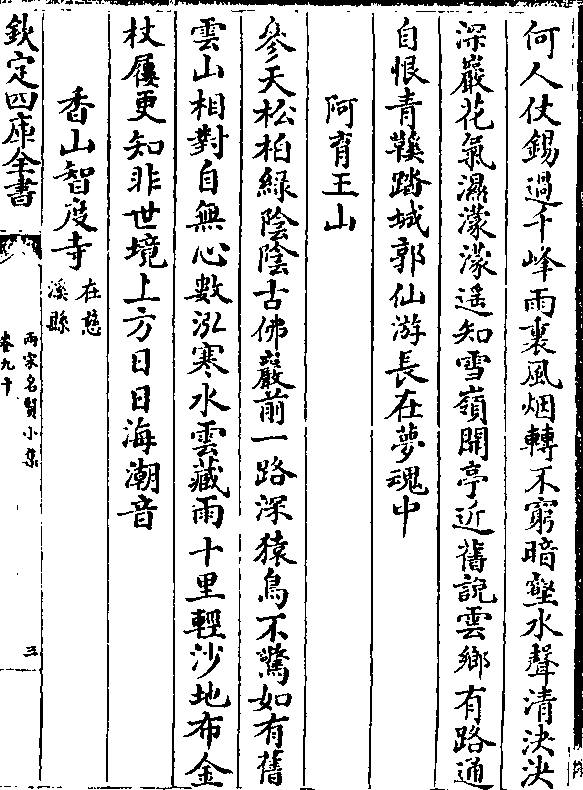 何人仗錫過千峰雨裏風烟轉不窮暗壑水聲清決決
深巖花氣濕濛濛遥知雪嶺開亭近舊說雲鄉有路通
自恨青鞵踏城郭仙游長在夢魂中
阿育王山
參天松柏綠陰陰古佛巖前一路深猿鳥不驚如有舊
雲山相對自無心數泓寒水雲藏雨十里輕沙地布金
杖屨更知非世境上方日日海潮音
香山智度寺在慈溪縣
欽定四庫全書
兩宋名賢小集
卷九十
三